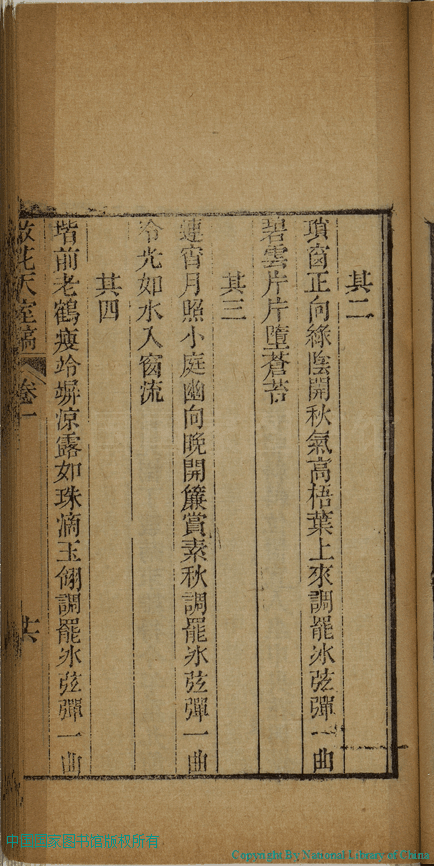 其二
瑣窗正向綠陰開秋氣高梧葉上來調罷冰弦彈一曲
碧雲片片墮蒼苔
其三
連宵月照小庭幽向晚開簾賞素秋調罷冰弦彈一曲
冷光如水入窗流
其四
堦前老鶴瘦竛竮涼露如珠滴玉翎調罷冰弦彈一曲
散花天室稿 卷一
共
Copyright By National Library of China